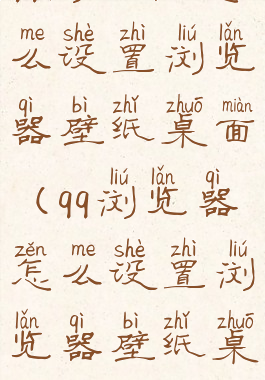 me shè zhì liú lǎn
么设置浏览
qì bì zhǐ zhuō miàn
器壁纸桌面
liú lǎn qì
(qq浏览器
zěn me shè zhì liú
怎么设置浏
lǎn qì bì zhǐ zhuō
览器壁纸桌